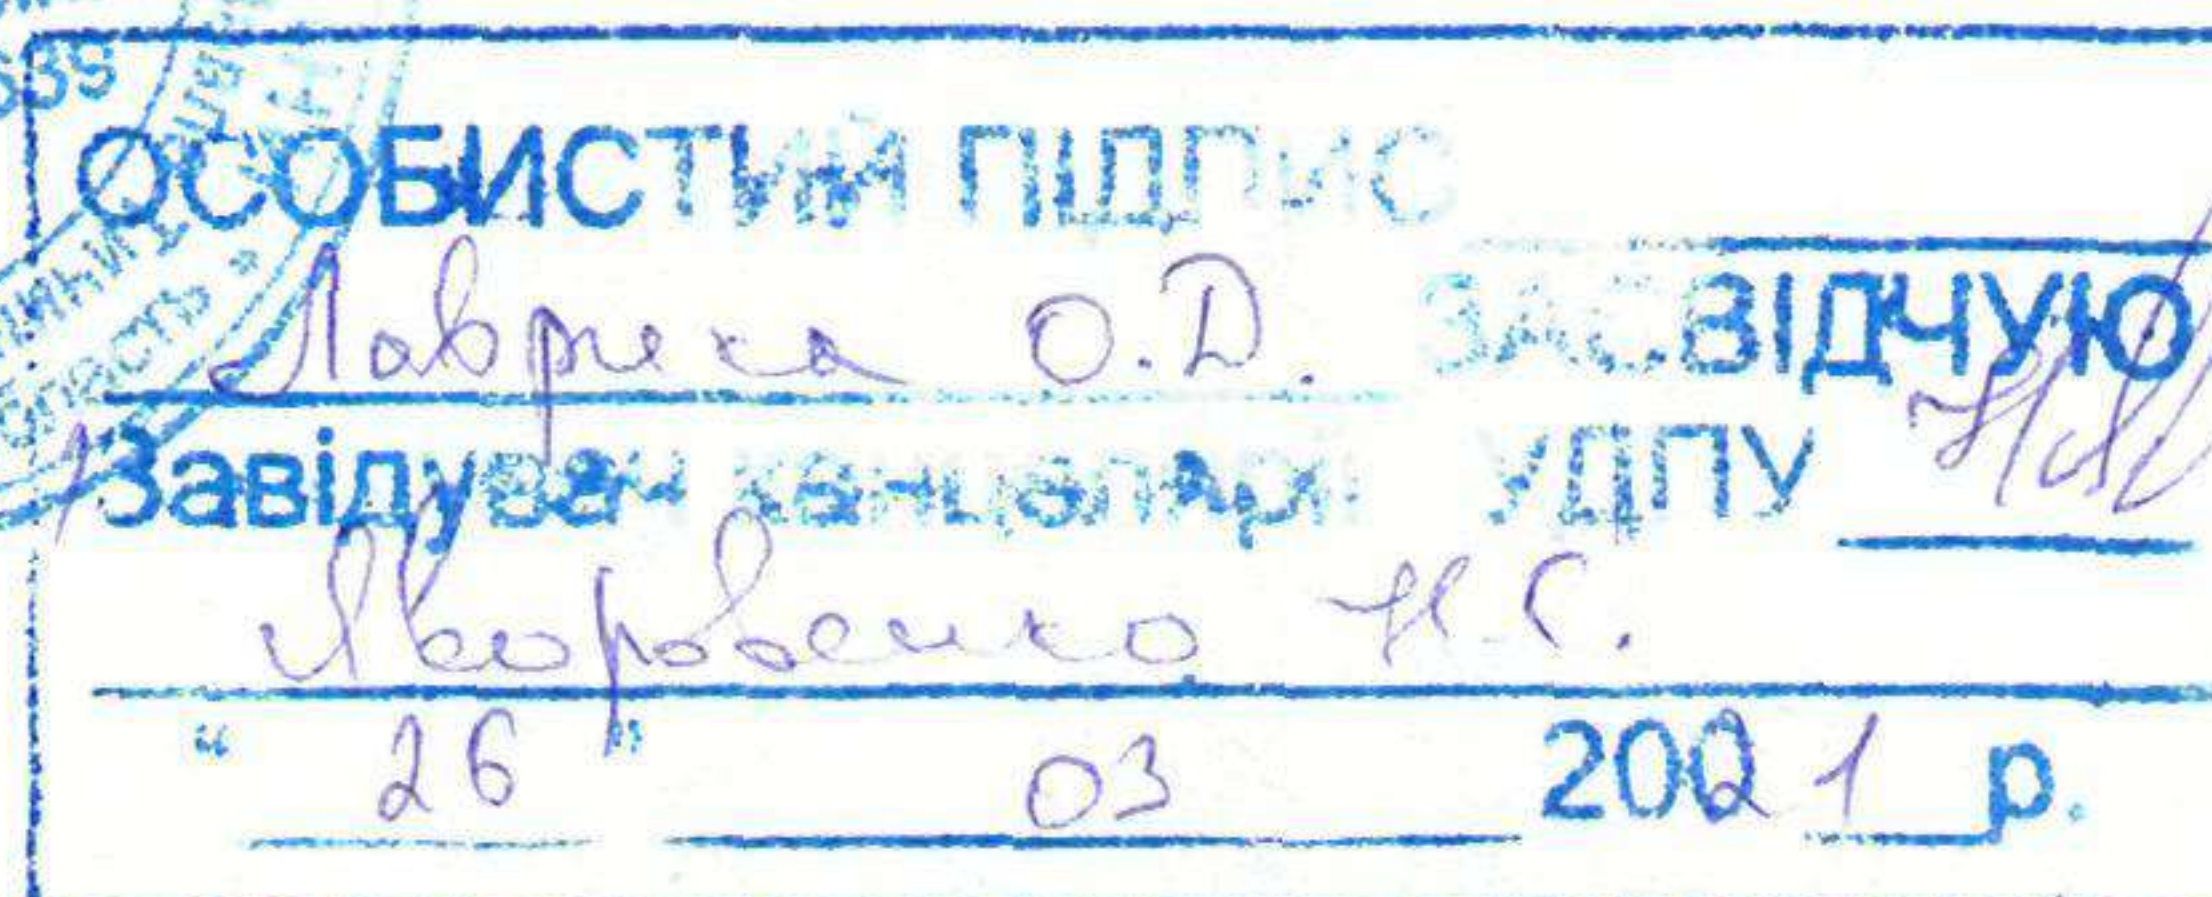 ОСОБИСТИЙ ПІДПИС
Лаврика О.Д. ЗАСВІДЧУЮ
Завідувач канцелярії УДПУ
Яворовенко Н.С.
" 26 " 03 2021 р.